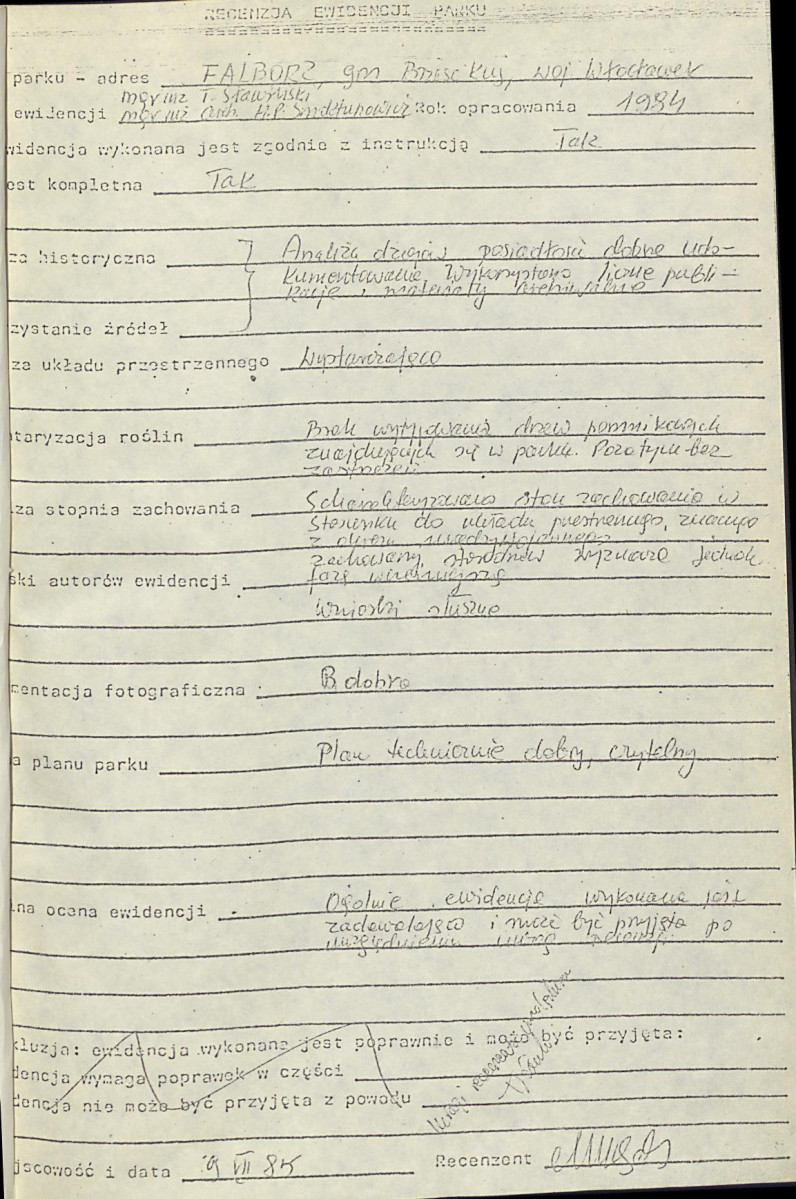 RECENZJA EWIDENCJI PARKU
parku - adres FALBORZ, gm Brześć Kuj, woj Włocławek
mgr inż T. Sławiński
ewidencji mgr inż arch. H.P. Rok opracowania 1984
widencja wykonana jest zgodnie z instrukcją Tak
est kompletna Tak
za historyczna Analiza dziejów posiadłości dobrze udo-
kumentowana. Wykorzystano liczne publi-
kacje i materiały archiwalne
zystanie źródeł
za układu przestrzennego Wystarczająco
taryzacja roślin Brak wytypowania drzew pomnikowych
znajdujących się w parku. Poza tym bez
zastrzeżeń
za stopnia zachowania stan zachowania w
stosunku do układu przestrzennego, znanego
z okresu międzywojennego
zachowany, wyznacza jednak
ski autorów ewidencji fazę wcześniejszą
Wnioski słuszne
mentacja fotograficzna B. dobra
a planu parku Plan technicznie dobry, czytelny
lna ocena ewidencji Ogólnie ewidencja wykonana jest
zadowalająco i może być przyjęta po
uwzględnieniu uwag
kluzja: ewidencja wykonana jest poprawnie i może być przyjęta:
dencja wymaga poprawek w części
dencja nie może być przyjęta z powodu
jscowość i data 9 VII 85 Recenzent